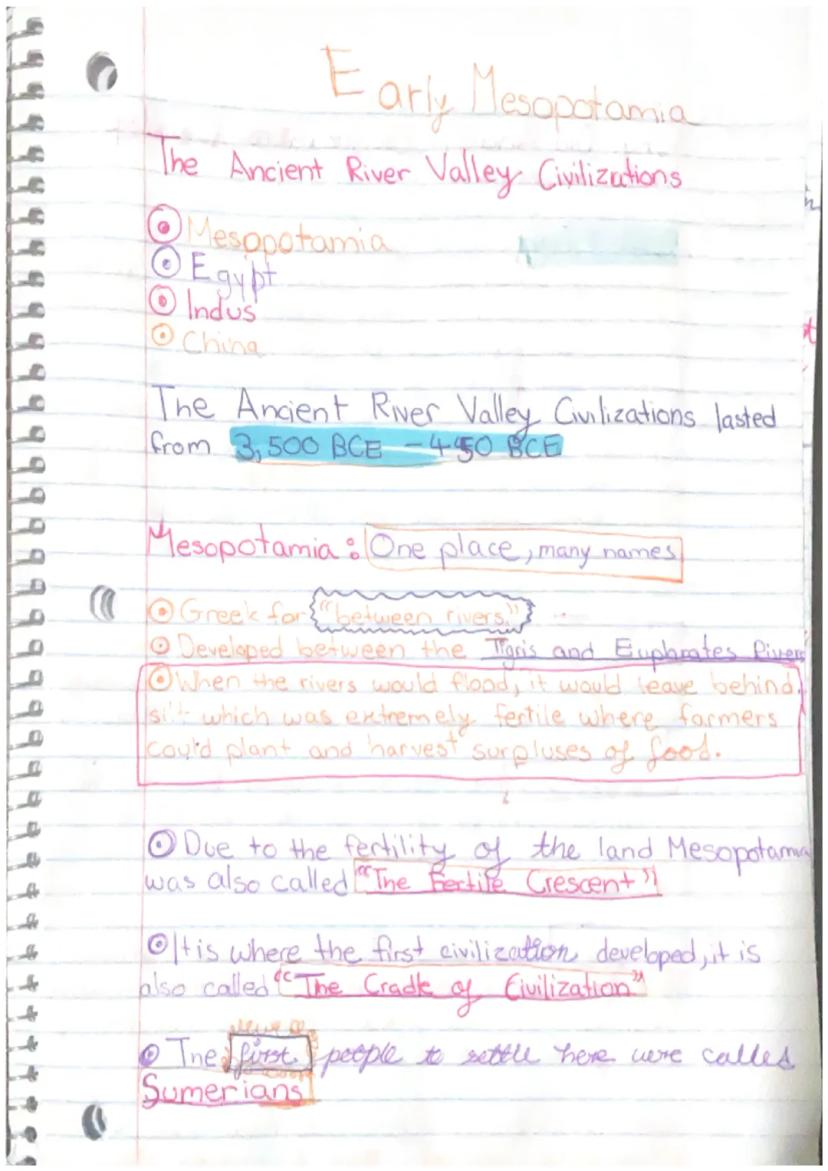 Early Mesopotamia
The Ancient River Valley Civilizations
Mesopotamia
Egypt
Indus
China
The Ancient River Valley Civilizations lasted
from 3,500 BCE - 450 BCE
Mesopotamia: One place, many names
Greek for "between rivers."
Developed between the Tigris and Euphrates Rivers
When the rivers would flood, it would leave behind
silt which was extremely fertile where farmers
could plant and harvest surpluses of food.
Due to the fertility of the land Mesopotamia
was also called "The Fertile Crescent"
It is where the first civilization developed, it is
also called "The Cradle of Civilization"
The first people to settle here were called
Sumerians